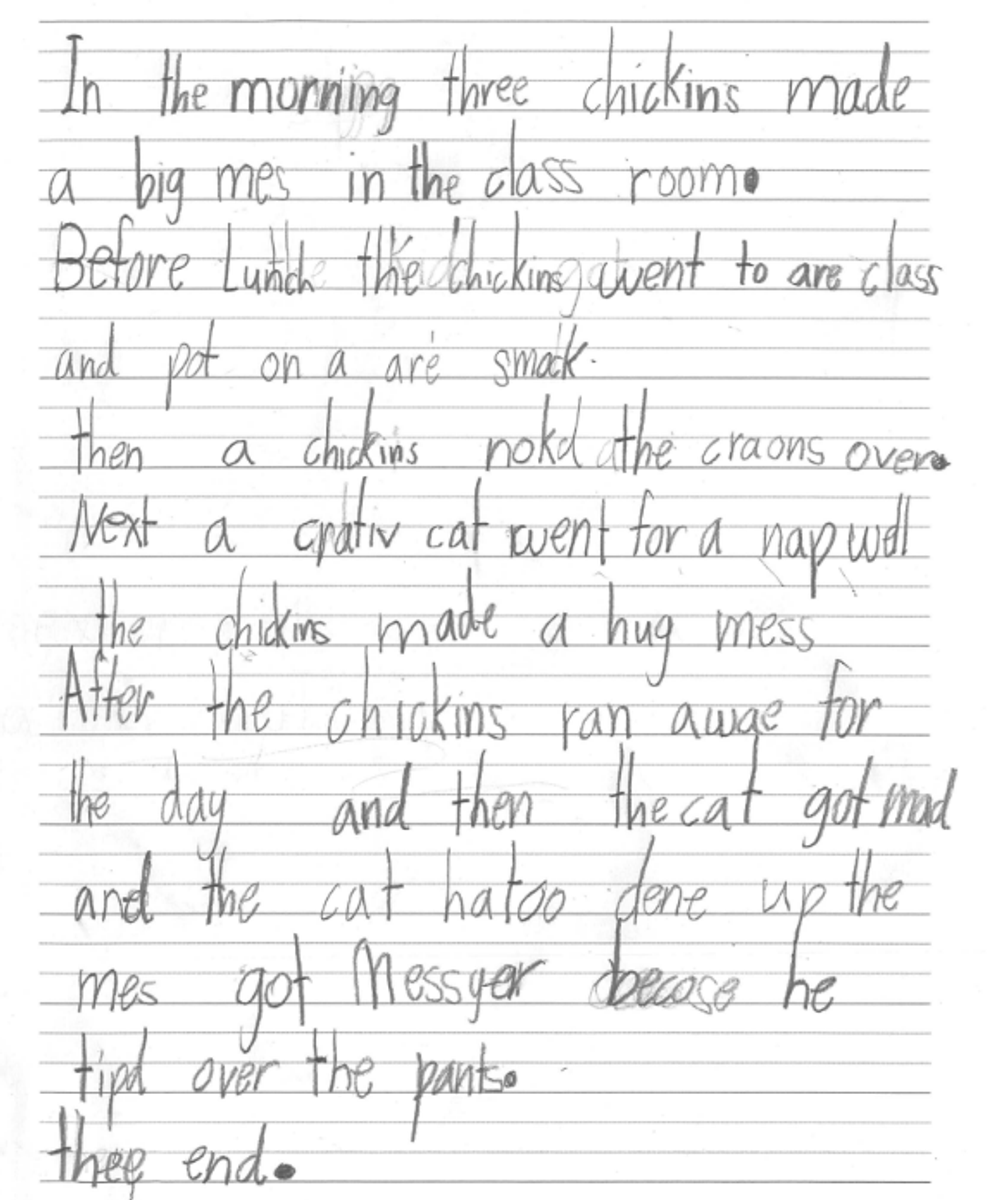 In the morning three chickins made
a big mes in the class room.
Before Lunch the chickins went to are class
and pot on a are smock.
then a chickins nokd the craons over.
Next a crativ cat went for a nap wll
the chickins made a hug mess
After the chickins ran awae for
the day and then the cat got mad
and the cat hatoo clene up the
mes got Messyer becose he
tipd over the pants.
thee end.